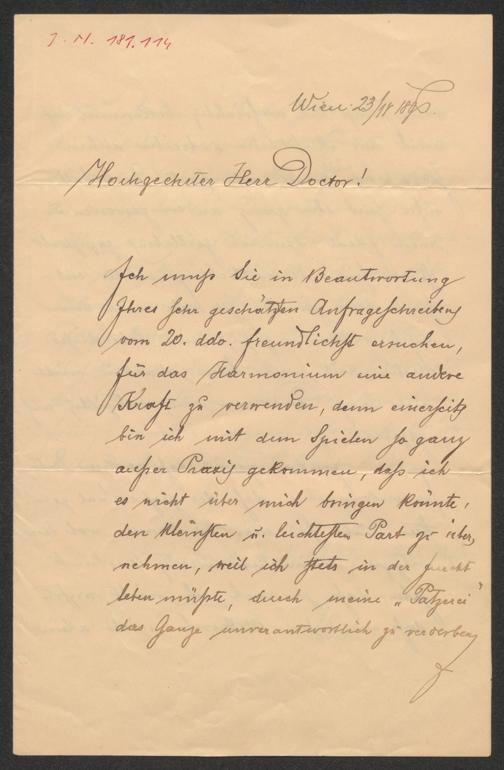 J. N. 181.114
Wien 23/
Hochgeehrter Herr Doctor!
Ich muss Sie in Beantwortung
Ihres sehr geschätzten Anfrageschreibens
vom 20. ddo. freundlichst ersuchen,
für das Harmonium eine andere
Kraft zu verwenden, denn einerseits
bin ich mit dem Spielen so ganz
außer Praxis gekommen, daß ich
es nicht über mich bringen könnte,
den kleinsten u. leichtesten Part zu über-
nehmen, weil ich stets in der Furcht
leben müßte, durch meine „Patzerei"
das Ganze unverantwortlich zu verderben